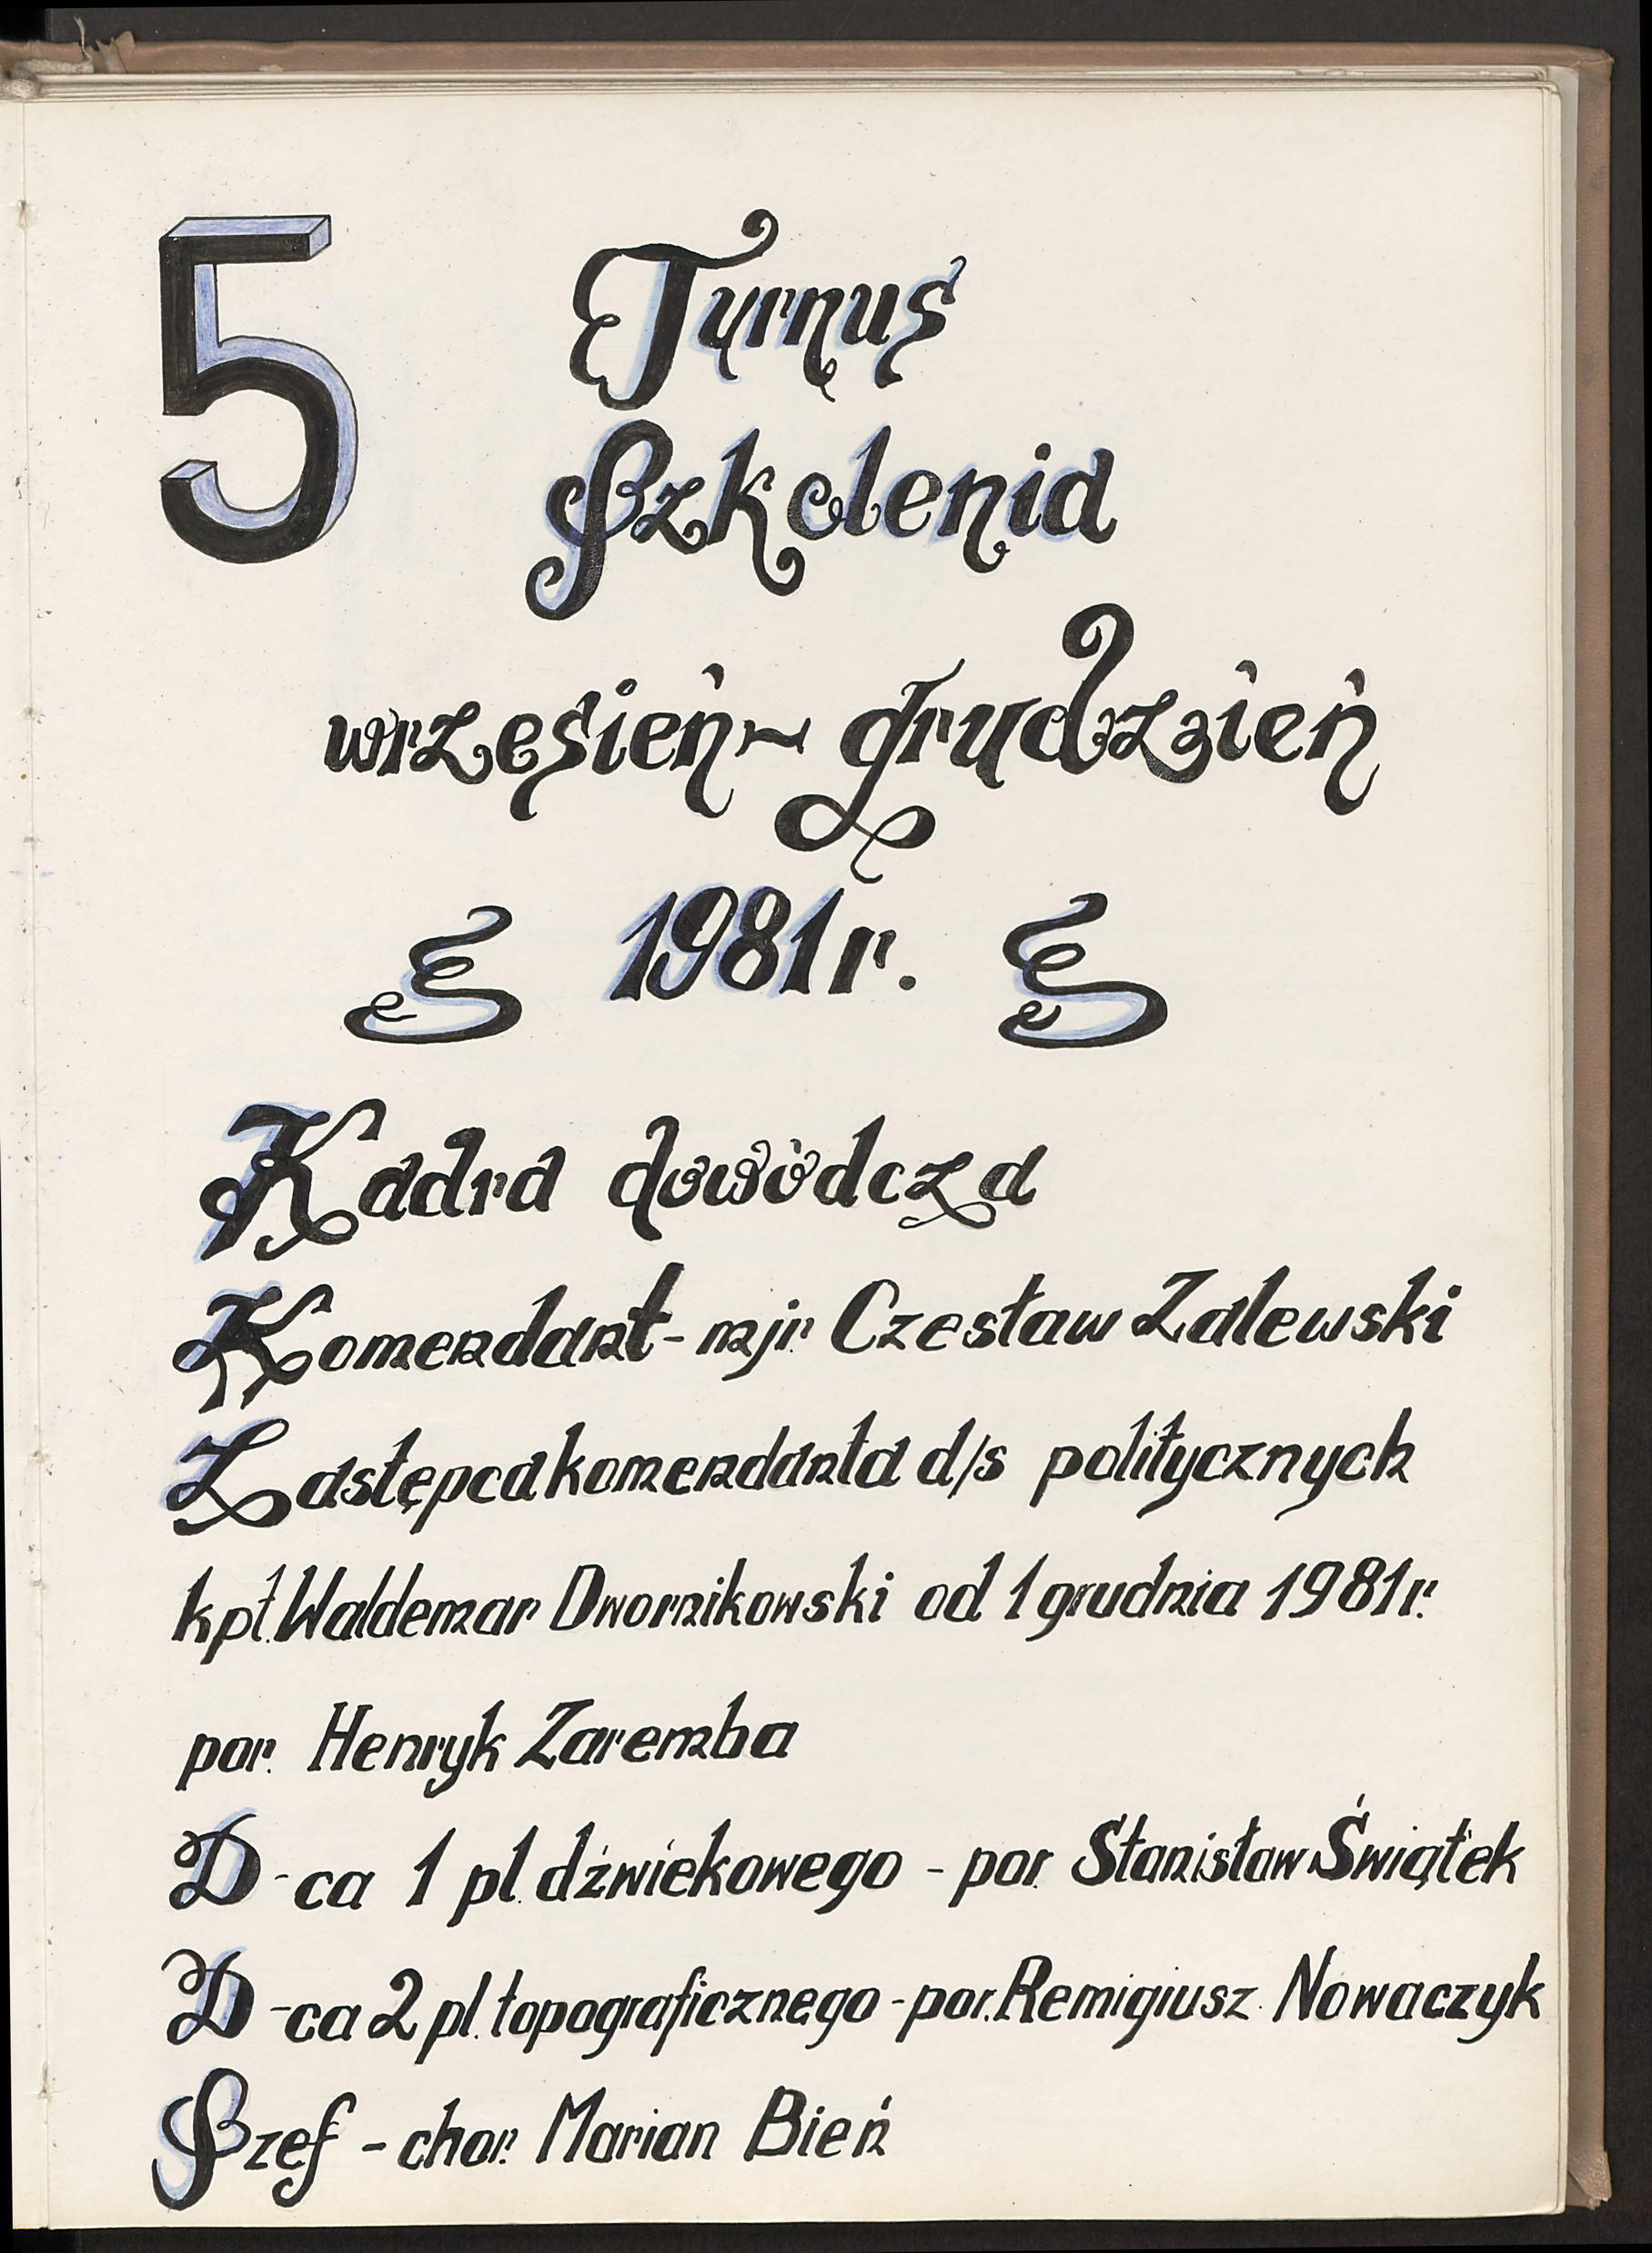 5 Turnus
Szkolenia
wrzesień - grudzień
1981 r.
Kadra dowódcza
Komendant - mjr. Czesław Zalewski
Zastępca komendanta d/s politycznych
kpt. Waldemar Dwornikowski od 1 grudnia 1981 r.
por. Henryk Zaremba
D-ca 1 pl. dźwiekowego - por. Stanisław Świątek
D-ca 2 pl. topograficznego - por. Remigiusz Nowaczyk
Szef - chor. Marian Bień